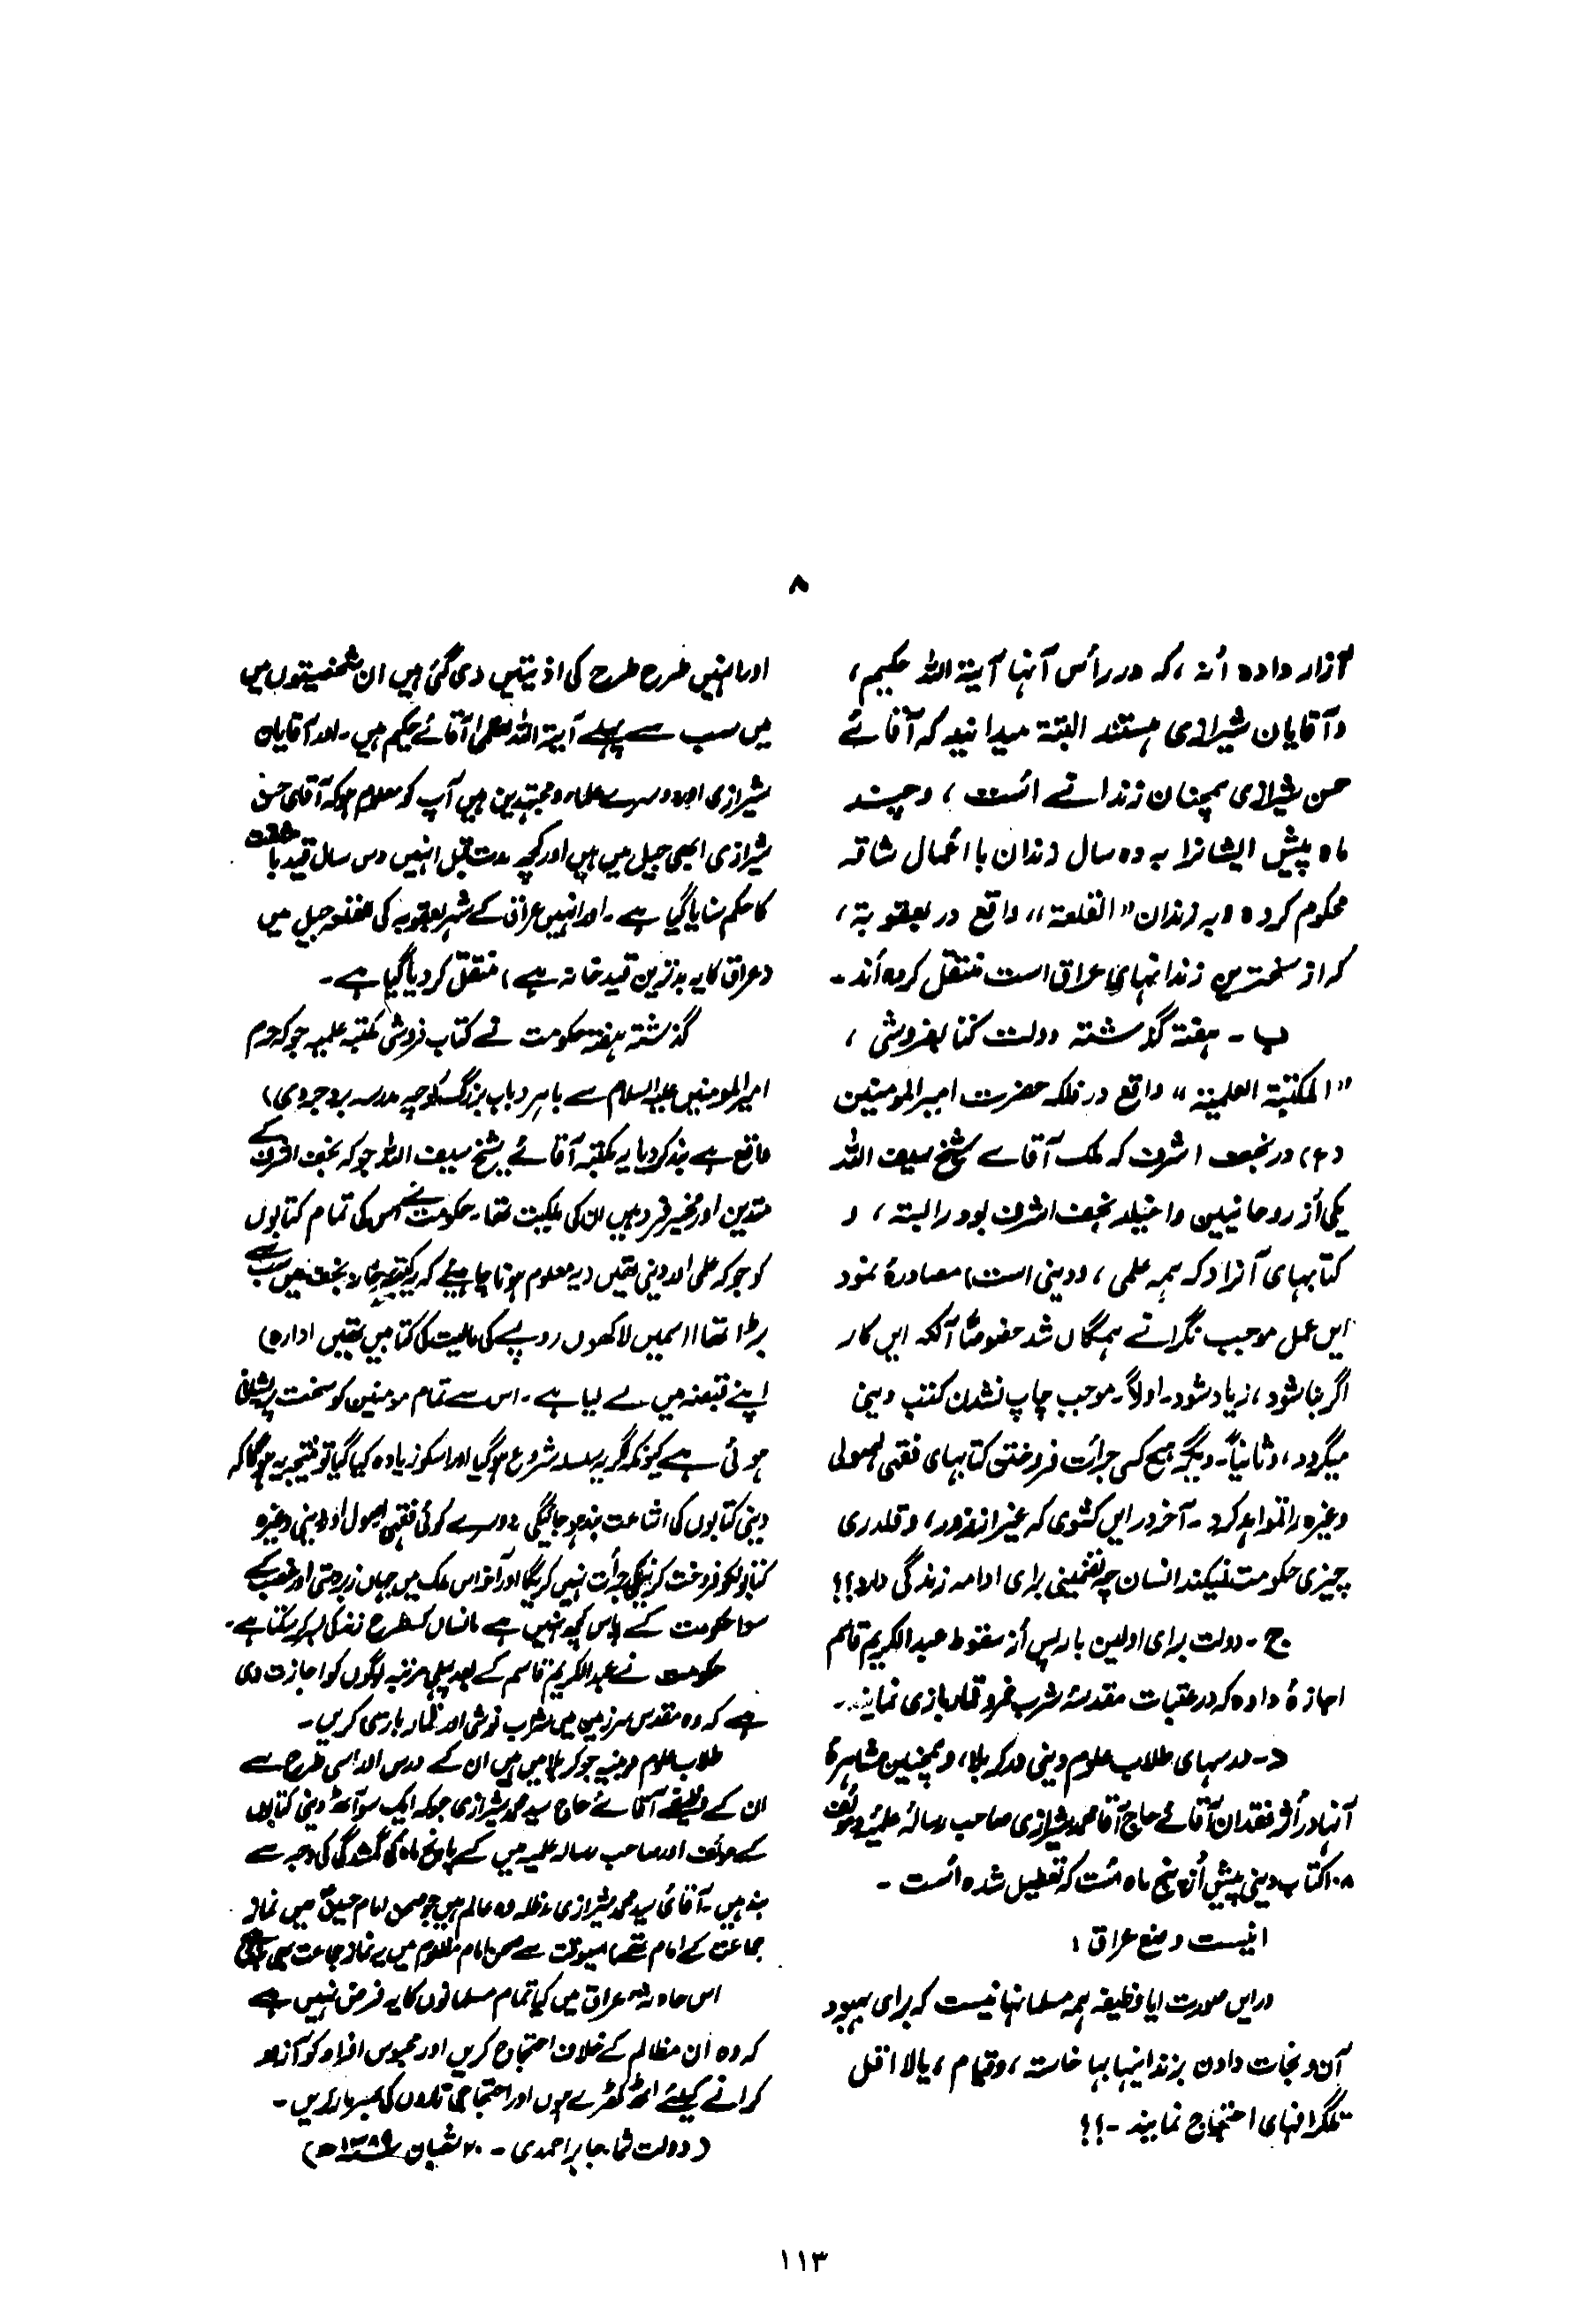 ۸
آزار داده أند ، که در رأس آنها آیة الله حکیم ،
و آقایان شیرازی ہستند البتة میدانید که آقائے
حسن شیرازی ہمچنان زندانے است ، و چند
ماه پیش ایشانرا به ده سال زندان با اعمال شاقہ
محکوم کرده و به زندان ” القلعة “ واقع در بعقوبة ،
که از سخترین زندانہای عراق است منتقل کرده أند ۔
ب ۔ ہفتۂ گذشتہ دولت کتابفروشی ،
” المکتبة العلمیة “ واقع در فلکہ حضرت امیر المومنین
(ع) در نجف اشرف که ملک آقاے شیخ سیف الله
یکی أز روحانیین واخیلہ نجف اشرف بود را بستہ ، و
کتابہای آنرا که ہمہ علمی ، و دینی است ، مصادرۂ نمود
این عمل موجب نگرانے ہمگان شد خصوصًا آنکه این کار
اگر بنا شود ، زیاد شود ۔ اولاً ۔ موجب چاپ نشدن کتب دینی
میگردد ، و ثانیاً ۔ دیگر ہیچ کس جرائت فروختن کتابہای فقہی اصولی
وغیره را نخواہد کرد ۔ آخر در این کشوری که غیر از زور ، و قلدری
چیزی حکومت نمیکند انسان چه تضمینی برای ادامہ زندگی دارد؟؟
ج ۔ دولت برای اولین بار پس أز سقوط عبدالکریم قاسم
اجازۂ داده که در عتبات مقدسۂ شرب خمر و قمار بازی نمایند ۔
د ۔ درسہای طلاب علوم دینی در کربلا ، و ہمچنین مشاہرۂ
آنہا در أثر فقدان آقائے حاج آقا محمد شیرازی صاحب رسالۂ علمیۂ و مؤلف
۱۰۸ کتاب دینی پیش أز پنج ماه است که تعطیل شده است ۔
اینست وضع عراق :
در این صورت ایا وظیفہ ہمہ مسلمانہا نیست که برای بہبود
آن و نجات دادن بزندانیہا بپا خاستہ ، و قیام ، یا لااقل
تلگرافہای احتجاج نمایند ۔ ؟؟
اور انہیں طرح طرح کی اذیتیں دی گئی ہیں ان شخصیتوں میں
میں سب سے پہلے آیة الله العظمیٰ آقائے حکیم ہیں ۔ اور آقایان
شیرازی اور دوسرے علماء و مجتہدین ہیں آپ کو معلوم ہو کہ آقای حسن
شیرازی ابھی جیل میں ہیں اور کچھ مدت قبل انہیں دس سال قید با مشقت
کا حکم سنایا گیا ہے ۔ اور انہیں عراق کے شہر بعقوبہ کی قلعہ جیل میں
(عراق کا یہ بدترین قید خانہ ہے) منتقل کر دیا گیا ہے ۔
گذشتہ ہفتہ حکومت نے کتاب فروشی مکتبہ علمیہ جو کہ حرم
امیر المومنین علیہ السلام سے باہر (باب بزرگ کوچہ مدرسہ بروجردی)
واقع ہے بند کر دیا یہ مکتبہ آقائے شیخ سیف الله جو کہ نجف اشرف کے
متدین اور مخیر فرد ہیں ان کی ملکیت تھا ۔ حکومت نے اس کی تمام کتابوں
کو جو کہ علمی اور دینی تھیں (یہ معلوم ہونا چاہیئے کہ یہ کتب خانہ نجف میں سب سے
بڑا تھا اسمیں لاکھوں روپے کی مالیت کی کتابیں تھیں ادارہ)
اپنے قبضہ میں لے لیا ہے ۔ اس سے تمام مومنین کو سخت پریشانی
ہوئی ہے کیونکہ اگر یہ سلسلہ شروع ہو گیا اور اسکو زیادہ کیا گیا تو نتیجہ یہ ہو گا کہ
دینی کتابوں کی اشاعت بند ہو جائیگی دوسرے کوئی فقہی اصول اور دینی وغیرہ
کتابوں کو فروخت کرنیکی جرأت نہیں کریگا اور آخر اس ملک میں جہاں زبردستی اور غصب کے
سوا حکومت کے پاس کچھ نہیں ہے انسان کسطرح زندگی بسر کر سکتا ہے ۔
حکومت نے عبدالکریم قاسم کے بعد پہلی مرتبہ لوگوں کو اجازت دی
ہے کہ وہ مقدس سرزمین میں شراب نوشی اور قمار بازی کریں ۔
طلاب علوم دینیہ جو کربلا میں ہیں ان کے درس اور اسی طرح سے
ان کے وظیفے آقائے حاج سید محمد شیرازی جو کہ ایک سو آٹھ دینی کتابوں
کے مولف اور صاحب رسالہ علمیہ ہیں کے پانچ ماہ کی گمشدگی کی وجہ سے
بند ہیں ۔ آقائی سید محمد شیرازی مدظلہ وہ عالم ہیں جو صحن امام حسین میں نماز
جماعت کے امام تھے اسوقت سے صحن امام مظلوم میں یہ نماز جماعت بھی
اس حادثہ عراق میں کیا تمام مسلمانوں کا یہ فرض نہیں ہے
کہ وہ ان مظالم کے خلاف احتجاج کریں اور محبوس افراد کو آزاد
کرانے کیلئے اٹھ کھڑے ہوں اور احتجاجی تاروں کی بھرمار کریں ۔
(دولت شاه جابر احمدی ۔ ۲۰ شعبان ۱۳۸۹ھ)
۱۱۳